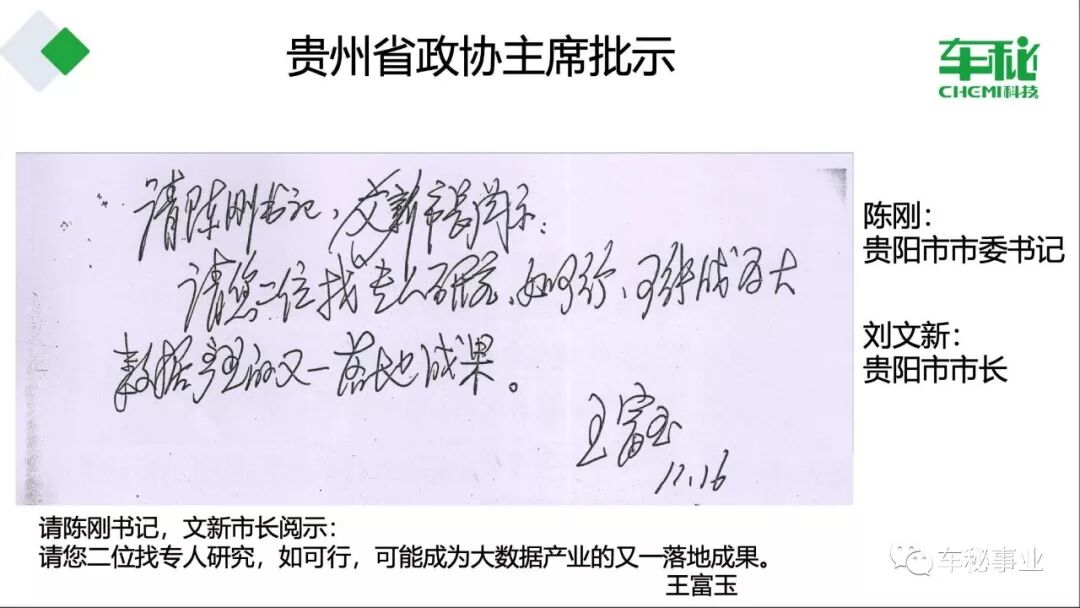 贵州省政协主席批示
车秘
CHEMI科技
请陈刚书记、文新市长阅示：
请您二位找专人研究、如可行、可能成为大
数据产业的又一落地成果。
王富玉
11.16
陈刚：
贵阳市市委书记
刘文新：
贵阳市市长
请陈刚书记，文新市长阅示：
请您二位找专人研究，如可行，可能成为大数据产业的又一落地成果。
王富玉
车秘事业